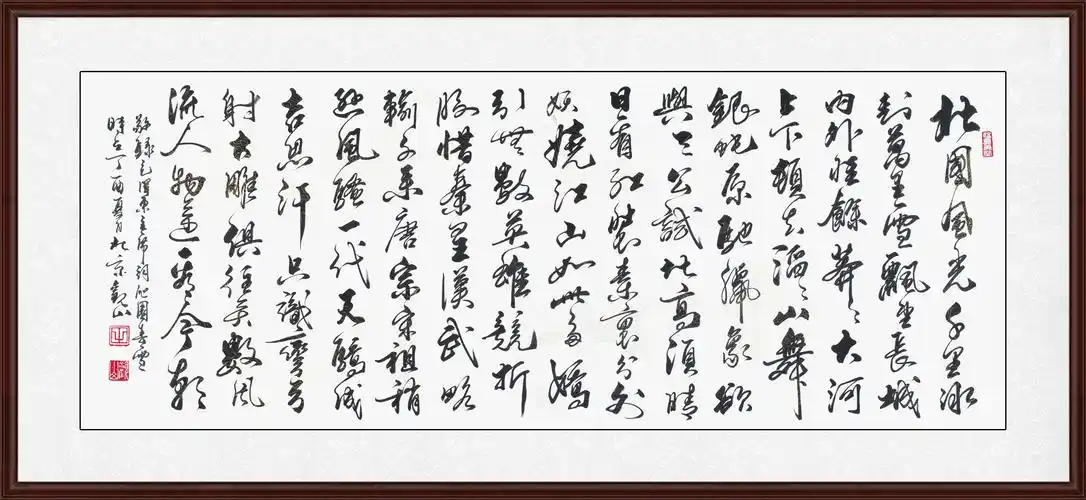 北國風光千里冰
封萬里雪飄望長城
内外惟餘莽〻大河
上下頓失滔〻山舞
銀蛇原馳臘象欲
與天公試比高須晴
日看紅裝素裹分外
妖嬈江山如此多嬌
引無數英雄競折
腰惜秦皇漢武略
輸文采唐宗宋祖稍
遜風騷一代天驕成
吉思汗只識彎弓
射大雕俱往矣數風
流人物還看今朝
敬錄毛澤東主席詞沁園春雪
時在丁酉夏月北京觀山